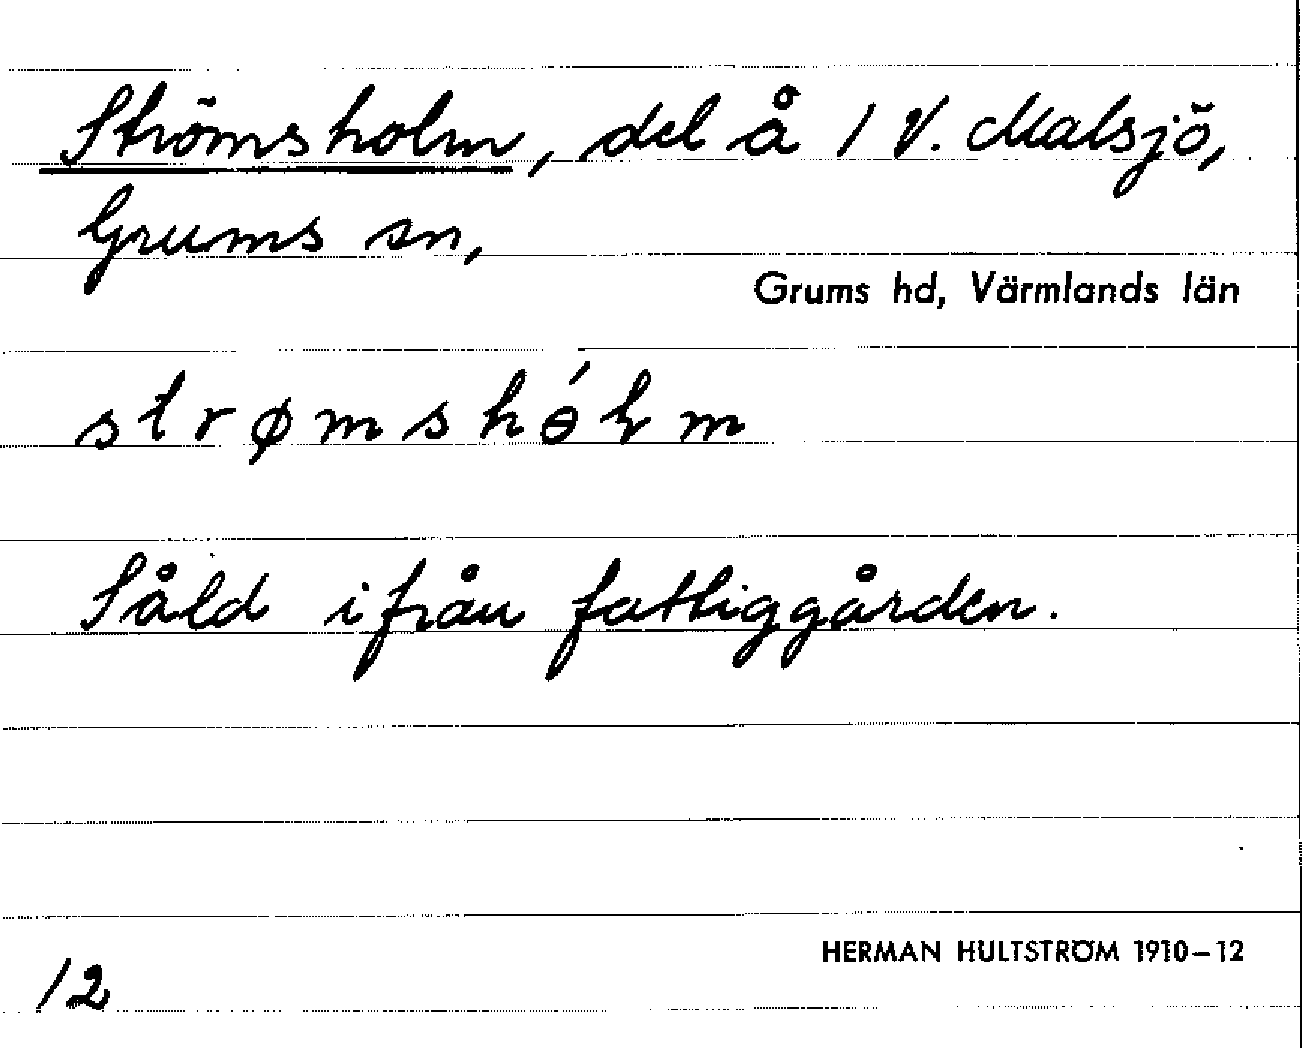 Strömsholm, del å 1 V. Malsjö,
Grums sn,
Grums hd, Värmlands län
strømshɵ́ɫm
Såld ifrån fattiggården.
HERMAN HULTSTRÖM 1910–12
12